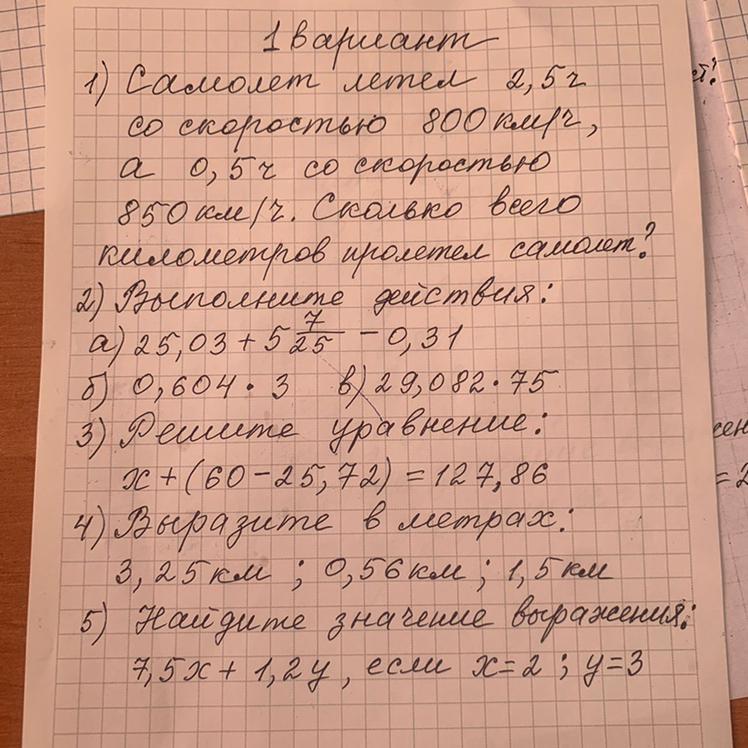 1 вариант
1) Самолет летел 2,5ч
со скоростью 800 км/ч,
а 0,5ч со скоростью
850 км/ч. Сколько всего
километров пролетел самолет?
2) Выполните действия:
а) 25,03 + 5 7/25 - 0,31
б) 0,604 · 3 в) 29,082 · 75
3) Решите уравнение:
x + (60 - 25,72) = 127,86
4) Выразите в метрах:
3,25 км ; 0,56 км ; 1,5 км
5) Найдите значение выражения:
7,5x + 1,2y, если x=2 ; y=3